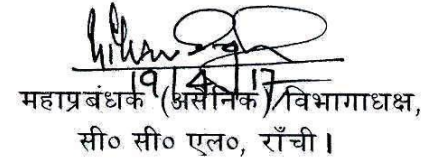 19/4/17
महाप्रबंधक (असैनिक)/विभागाध्यक्ष,
सी० सी० एल०, राँची।